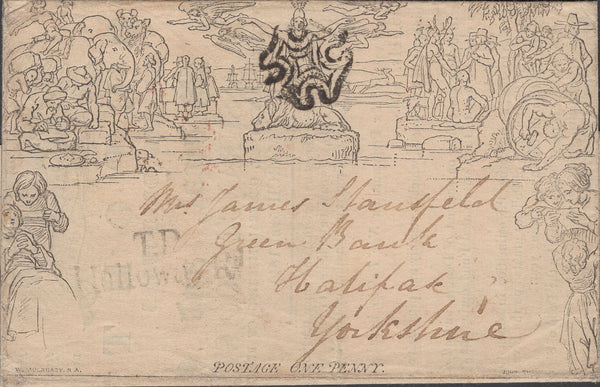 Mrs James Stansfeld
Green Bank
T.P
Holloway
Halifax
Yorkshire
W. MULREADY. R.A.
POSTAGE ONE PENNY.
JOHN